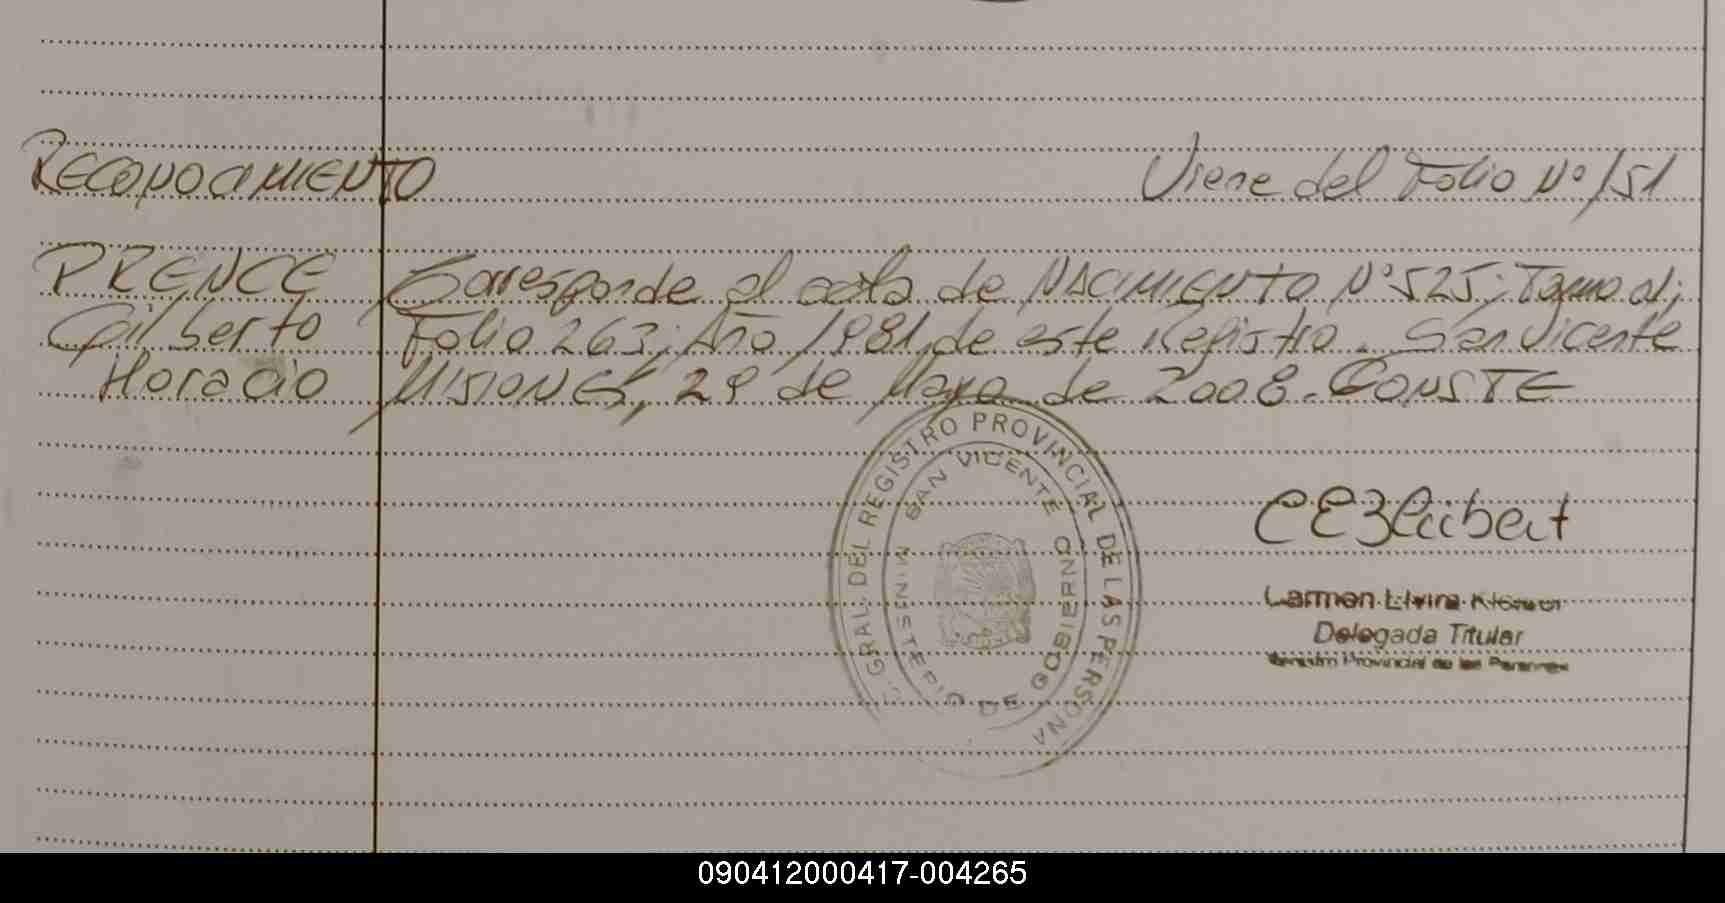 RECONOCIMIENTO
Viene del Folio Nº 151
PRENCE
Gilberto
Horacio
Corresponde al acta de NACIMIENTO Nº 525; Tomo
Folio 263; Año 1981, de este Registro. San Vicente
MISIONES, 29 de Mayo de 2008. CONSTE
GRAL. DEL REGISTRO PROVINCIAL DE LAS PERSONA
SAN VICENTE
MINISTERIO DE GOBIERNO
Carmen Elvira
Delegada Titular
Registro Provincial de las Personas
090412000417-004265